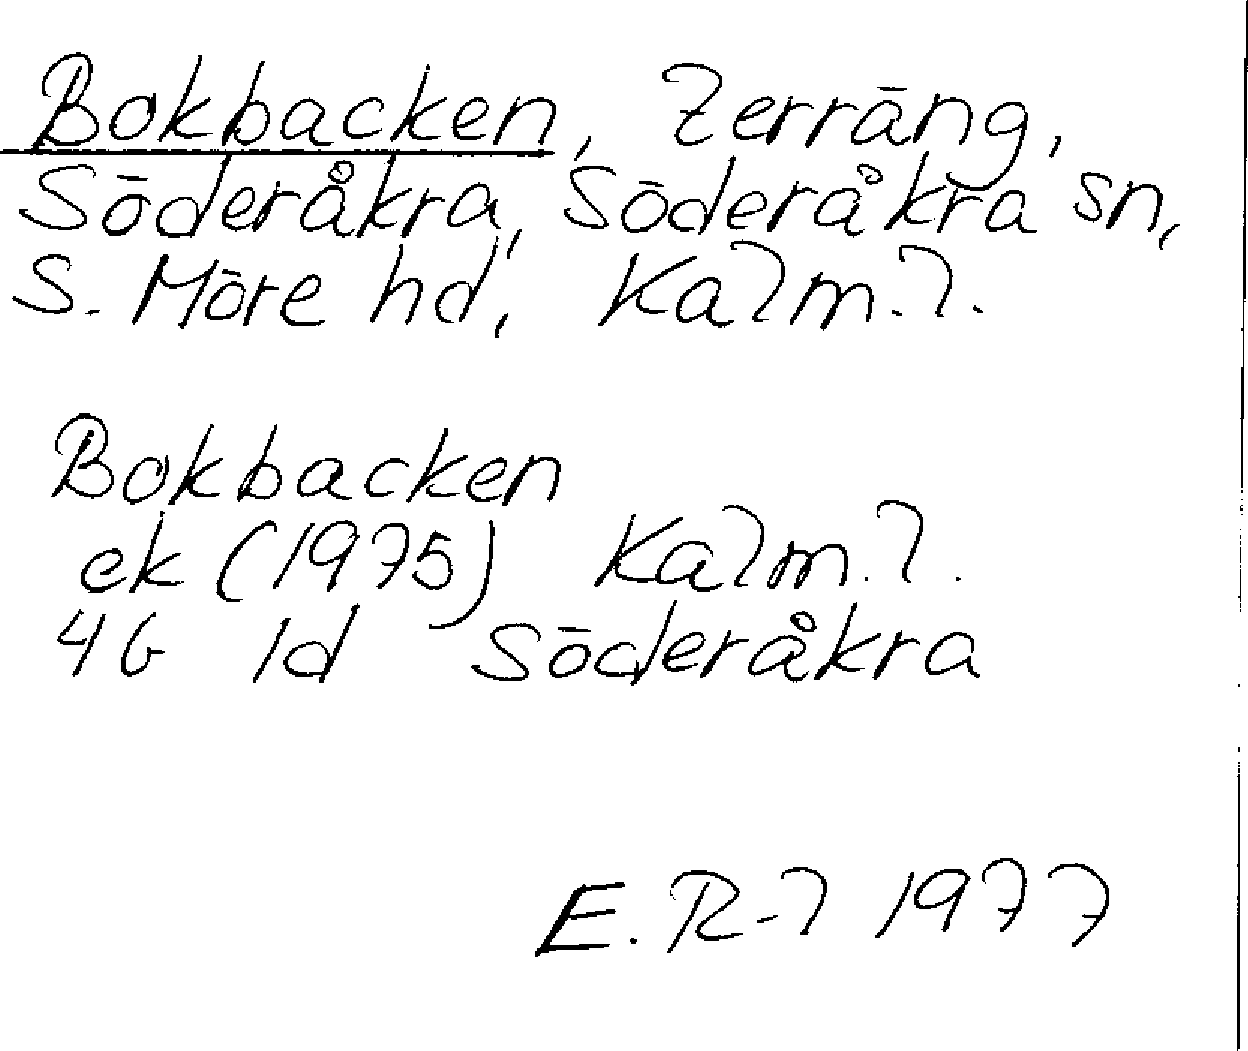 Bokbacken, Terräng,
Söderåkra, Söderåkra sn,
S. Möre hd, Kalm. l.
Bokbacken
ek (1975) Kalm. l.
4G 1d Söderåkra
E. R-l 1977